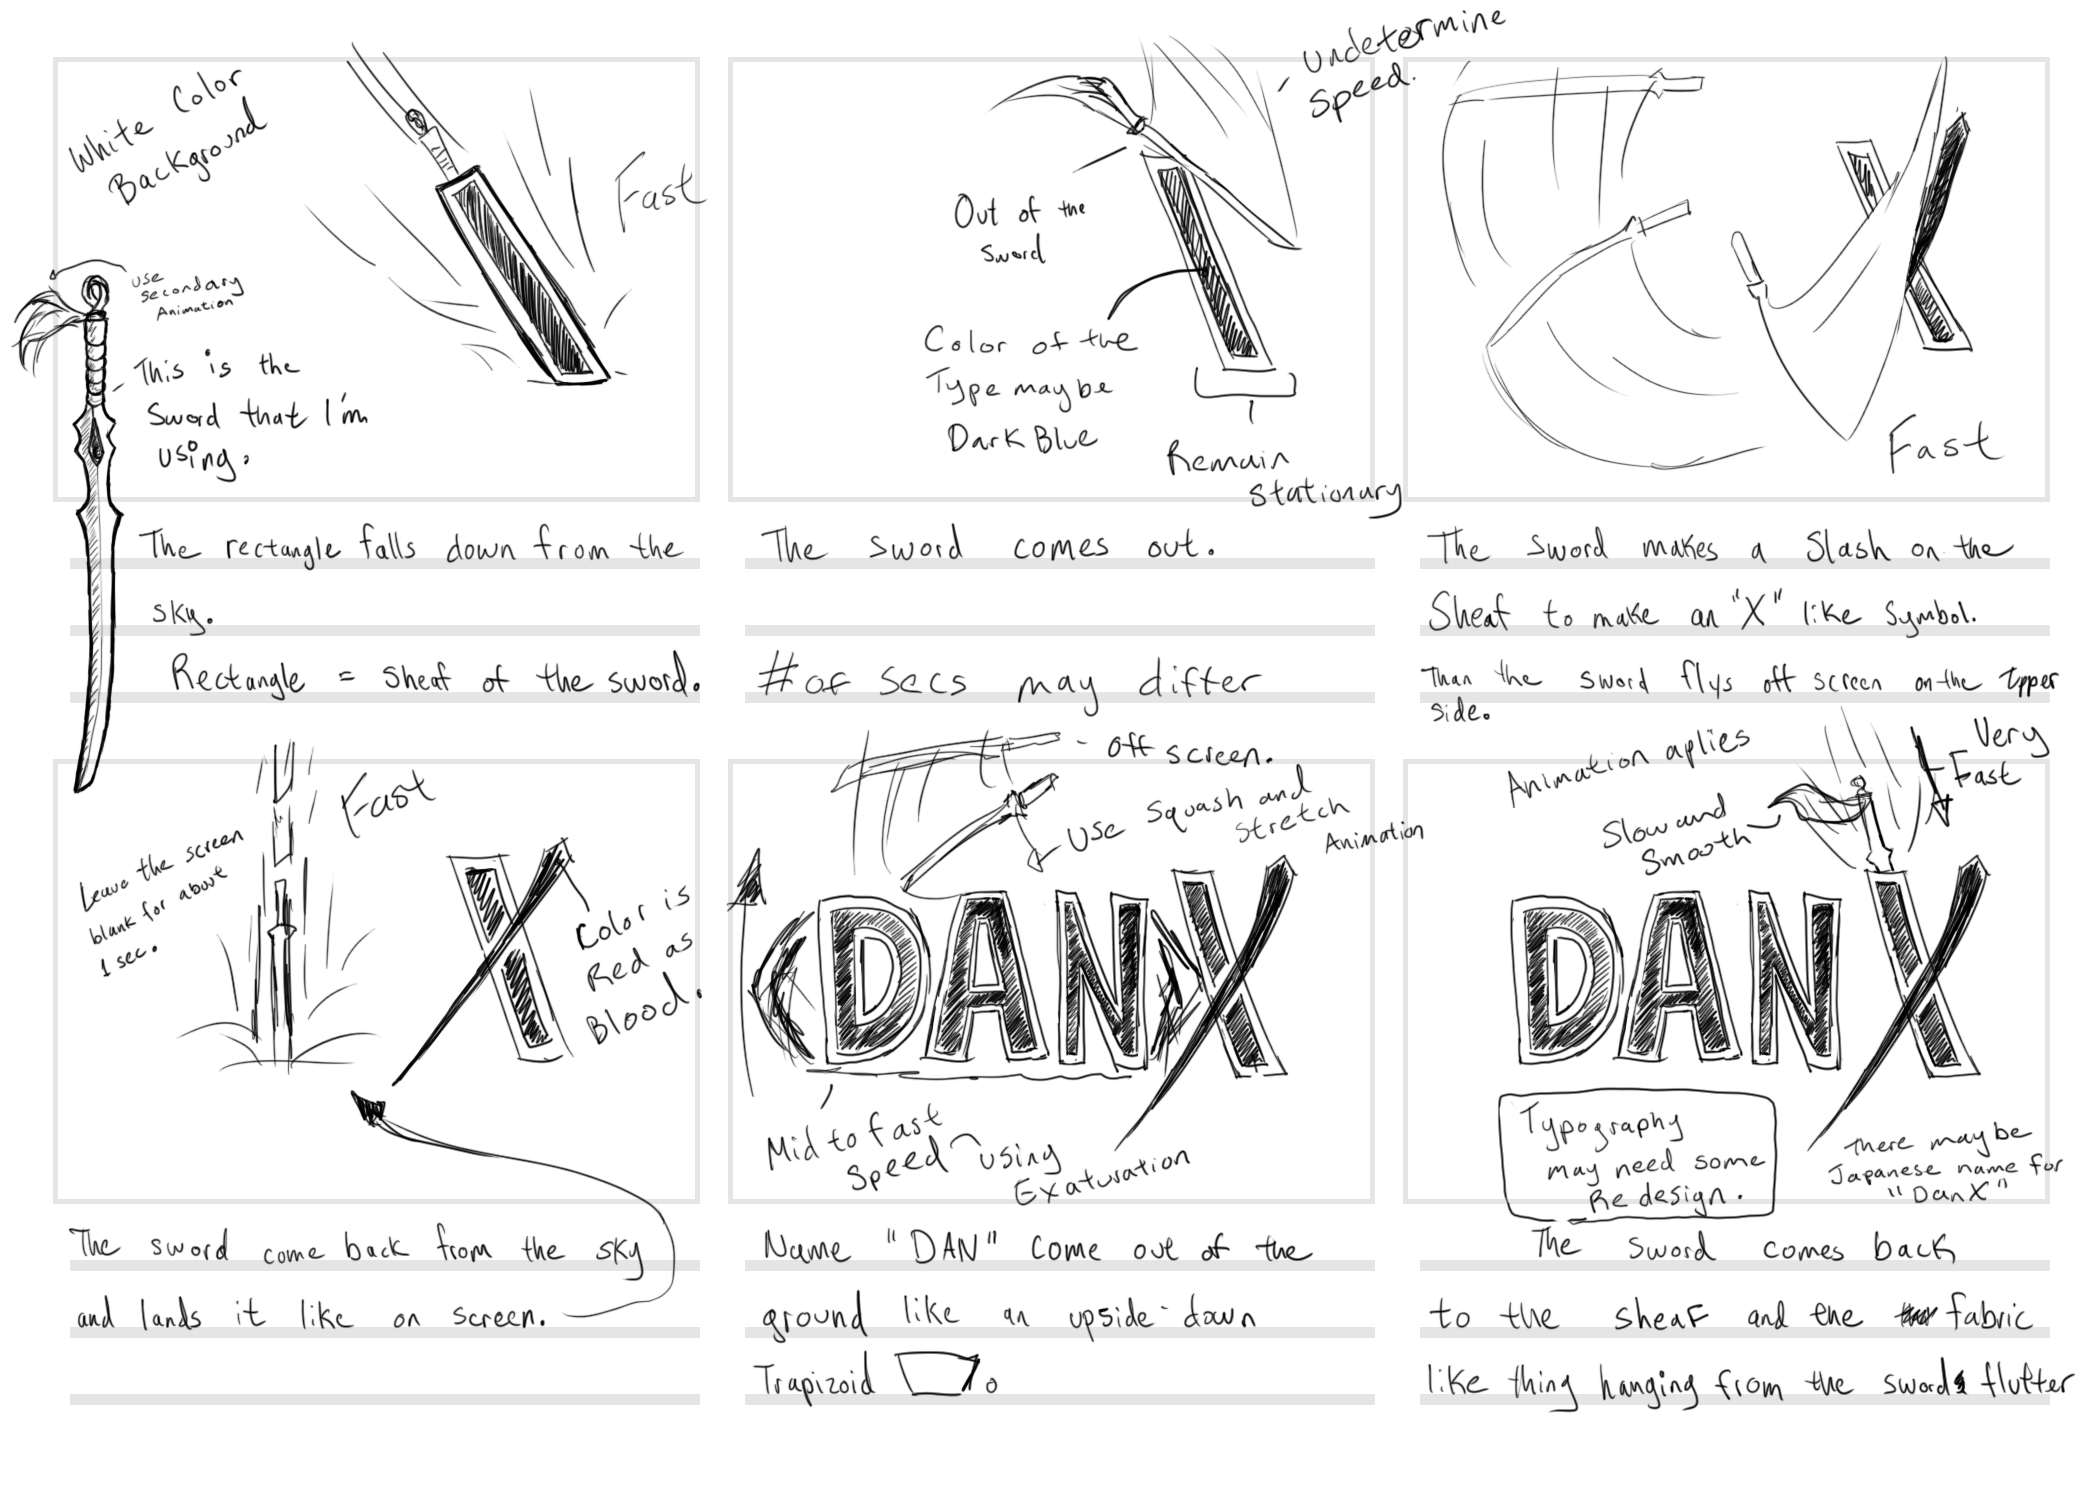 White Color
Background
Fast
use
secondary
Animation
This is the
Sword that I'm
using.
The rectangle falls down from the
sky.
Rectangle = sheaf of the sword.
undetermine
speed.
Out of the
sword
Color of the
Type may be
Dark Blue
Remain
stationary
The sword comes out.
# of secs may differ
Fast
The sword makes a slash on the
Sheaf to make an "X" like symbol.
Than the sword flys off screen on the upper
side.
Fast
Leave the screen
blank for about
1 sec.
Color is
Red as
Blood.
The sword come back from the sky
and lands it like on screen.
off screen.
use squash and
stretch
Animation
DANX
Mid to fast
speed using
Exaturation
Name "DAN" come out of the
ground like an upside-down
Trapizoid .
Animation aplies
Slow and
smooth
Very
Fast
DANX
Typography
may need some
Re design.
There may be
Japanese name for
"DanX"
The sword comes back
to the sheaf and the fabric
like thing hanging from the sword flutter